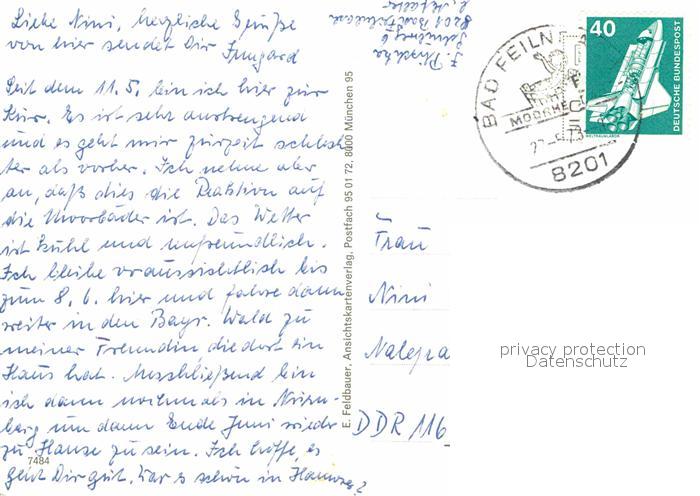 Liebe Nini, herzliche Grüße
von hier sendet Dir Irmgard
Seit dem 11.5. bin ich hier zur
Kur. Es ist sehr anstrengend
und es geht mir zurzeit schlech-
ter als vorher. Ich nehme aber
an, daß dies die Reaktion auf
die Moorbäder ist. Das Wetter
ist kühl und unfreundlich.
Ich bleibe voraussichtlich bis
zum 8.6. hier und fahre dann
weiter in den Bayr. Wald zu
meiner Freundin, die dort ein
Haus hat. Anschließend bin
ich dann nochmals in Nürn-
berg um dann Ende Juni wieder
zu Hause zu sein. Ich hoffe, es
geht Dir gut. War es schön in
7484
E. Feldbauer, Ansichtskartenverlag, Postfach 95 01 72, 8000 München 95
8201 Bad Feilnbach
BAD FEILN
MOORHE
8201
40
DEUTSCHE BUNDESPOST
WELTRAUMLABOR
Frau
Nini
Nalepa
DDR 116
privacy protection
Datenschutz